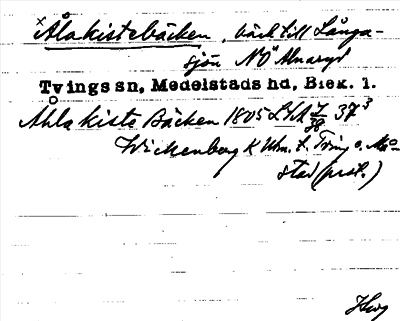 ×Ålakistebäcken, bäck till Långa-
sjön NÖ Alnaryd
Tvings sn, Medelstads hd, Blek. 1.
Åhla kiste Bäcken 1805 LSA 37³
Wickenberg K t. Tving o.
stad (prot.)